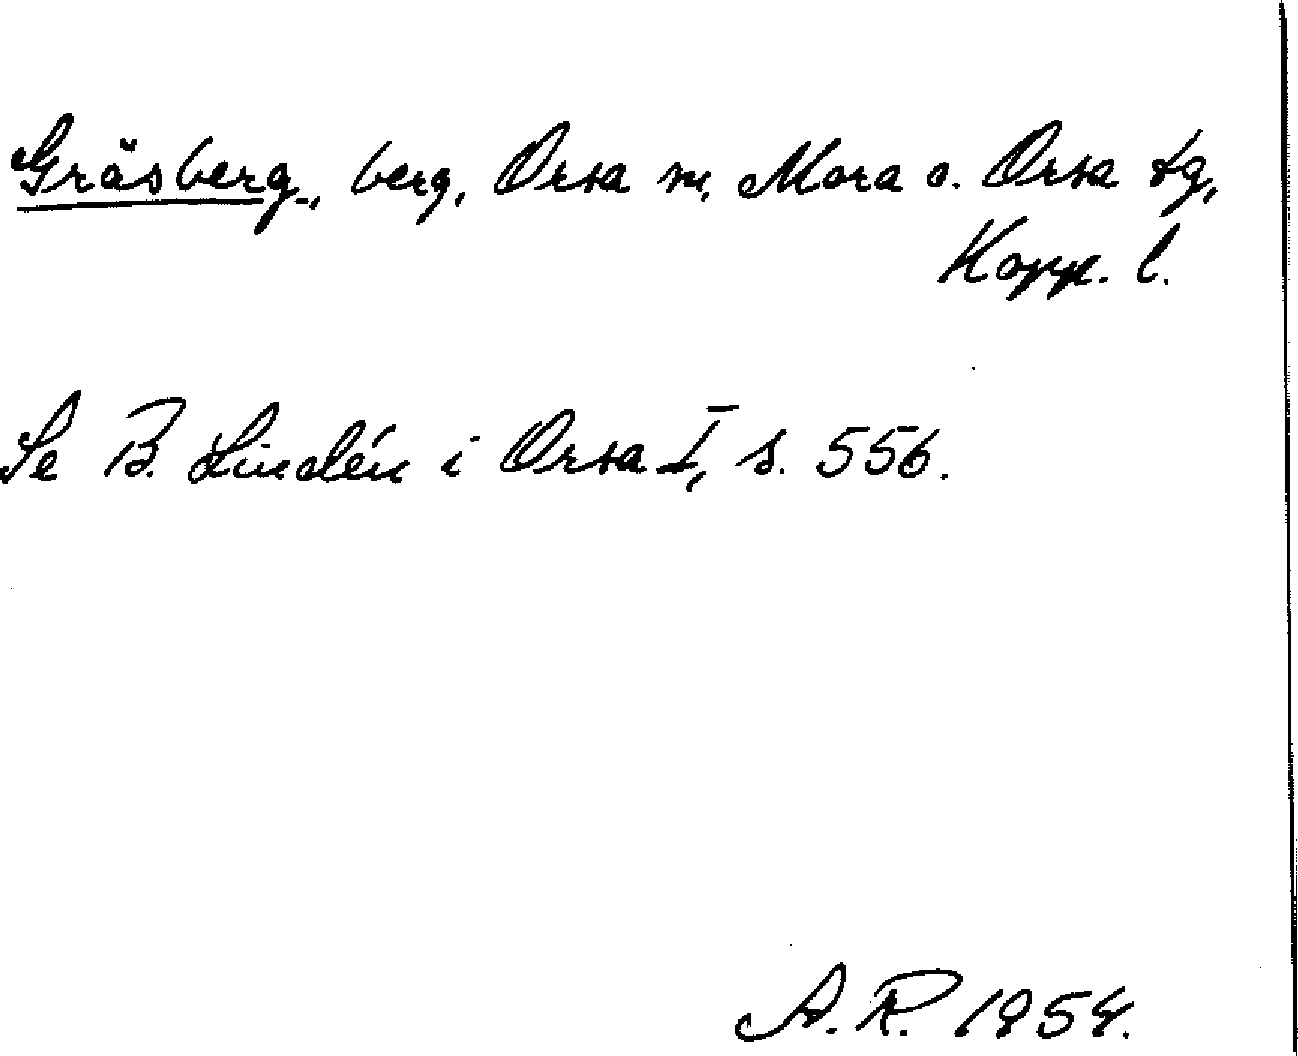 Gräsberg, berg, Orsa sn, Mora o. Orsa tg,
Kopp. l.
Se B. Lindén i Orsa I, s. 556.
A. R. 1954.